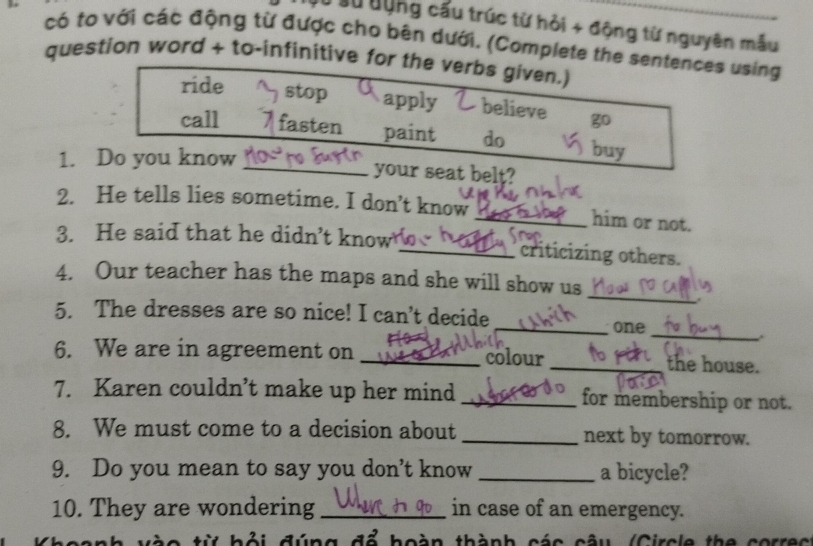 sử dụng cấu trúc từ hỏi + động từ nguyên mẫu
có to với các động từ được cho bên dưới. (Complete the sentences using
question word + to-infinitive for the verbs given.)
ride stop apply believe go
call fasten paint do buy
1. Do you know ____ your seat belt?
2. He tells lies sometime. I don't know ____ him or not.
3. He said that he didn't know ____ criticizing others.
4. Our teacher has the maps and she will show us How to apply.
5. The dresses are so nice! I can't decide which one to buy.
6. We are in agreement on which colour to paint the house.
7. Karen couldn't make up her mind ____ for membership or not.
8. We must come to a decision about ____ next by tomorrow.
9. Do you mean to say you don't know ____ a bicycle?
10. They are wondering Where to go in case of an emergency.
Khoanh vào từ hỏi đúng để hoàn thành các câu. (Circle the correct